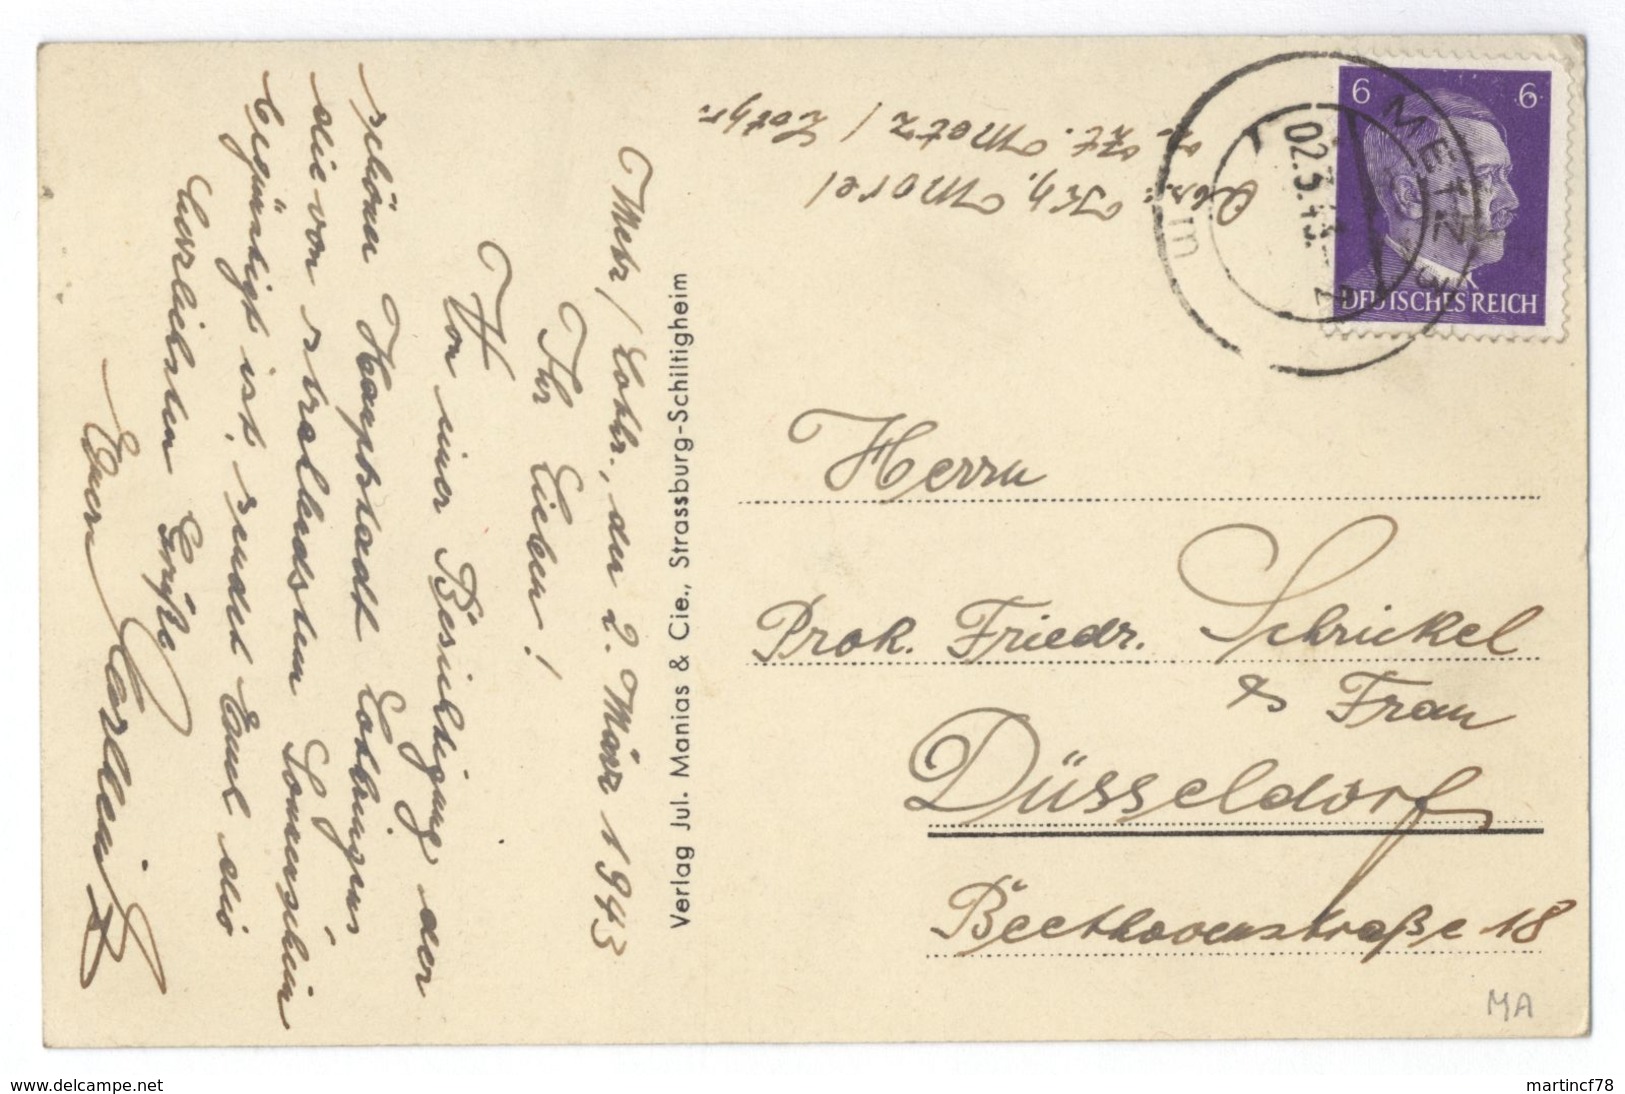 Metz / Lothr., den 2. März 1943
Ihr Lieben!
Von einer Besichtigung der
schönen Hauptstadt Lothringens
die von strahlendstem Sonnenschein
begünstigt ist, sendet Euch die
herzlichsten Grüße
Euer
Verlag Jul. Manias & Cie., Strassburg-Schiltigheim
Abs.: Kh. Morel
z. Zt. Metz / Lothr.
6 6
DEUTSCHES REICH
METZ
02.3.43.
m
Herrn
Prok. Friedr. Schrickel
& Frau
Düsseldorf
Beethovenstraße 18
MA
www.delcampe.net
martincf78